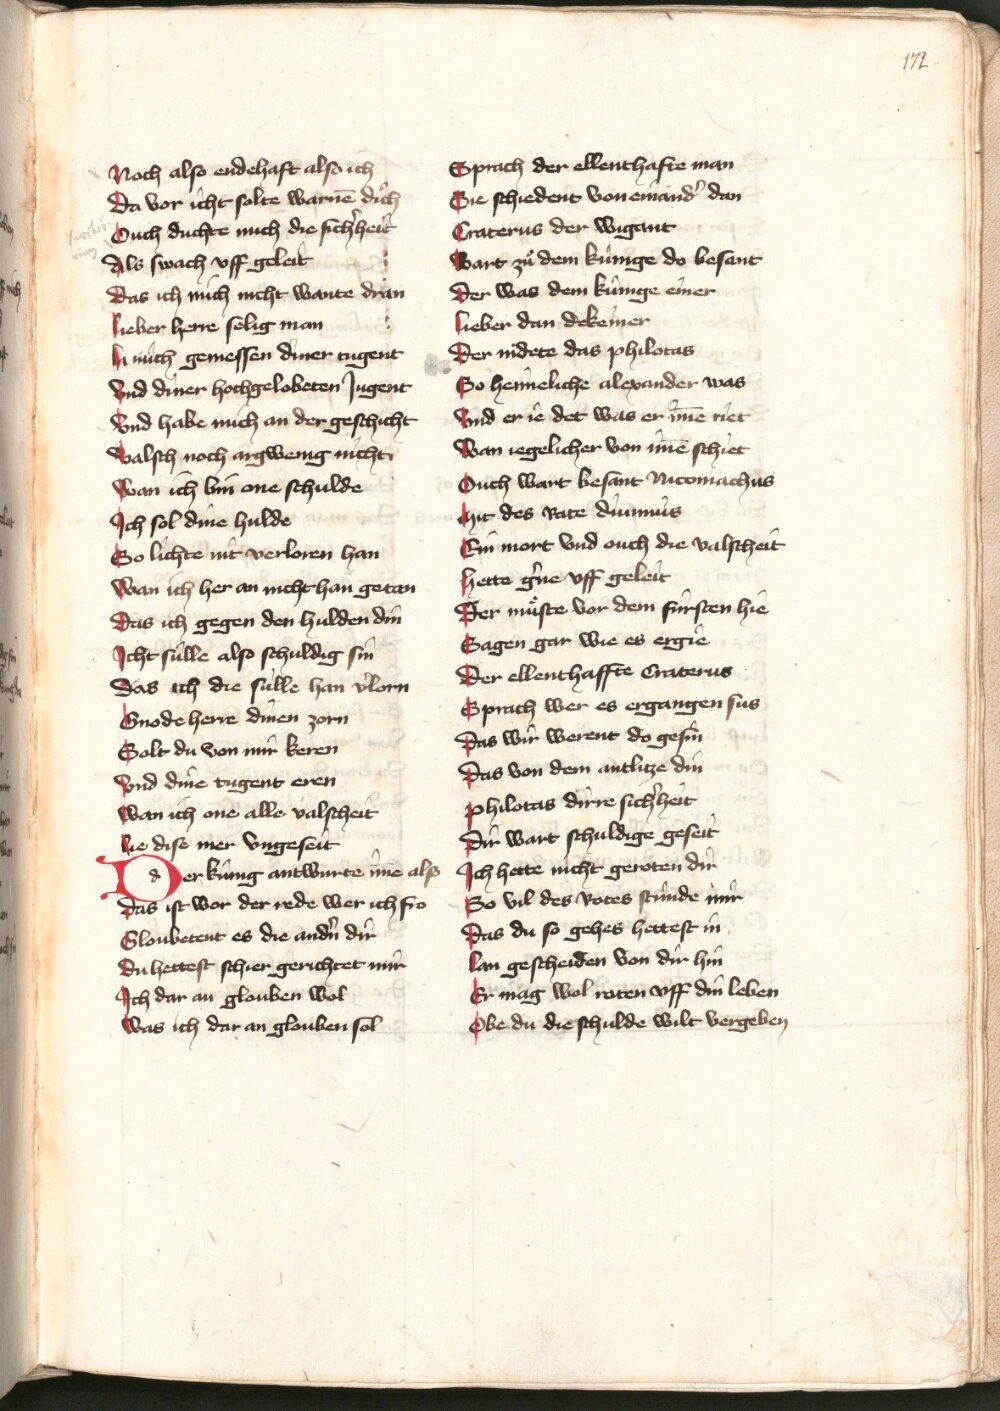 172
Noch also endehaft also ich
Da vor icht solte warnē dich
Ouch duchte mich die sich'heit
Als swach vff geleit
Das ich mich nicht wante dran
lieber herre selig man
la mich geniessen diner tugent
Vnd diner hochgelobeten Jugent
Vnd habe mich an der geschicht
valsch noch argwenig nicht
Wan ich bin one schulde
Ich sol dine hulde
So lichte nit verloren han
Wan ich her an nicht han getan
Das ich gegen den hulden din
Icht sülle also schuldig sin
Das ich die sülle han v'lorn
Gnode herre dinen zorn
Solt du von mir keren
Vnd dine tugent eren
Wan ich one alle valscheit
lie dise mer vngeseit
Der künig antwurte ime also
Das ist wor der rede wer ich fro
Gloubetent es die and'n dir
Du hettest schier gerichtet mir
Ich dar an glouben wol
Was ich dar an glouben sol
Sprach der ellenthafte man
Sie schiedent von einand' dan
Craterus der wigant
Wart zů dem künige do besant
Der was dem künige einer
lieber dan dekeiner
Der nidete das philotas
So heimeliche alexander was
Vnd er ie det was er īme riet
Wan iegelicher von īme schiet
Ouch wart besant Nicomachus
Mit des Rate dimnus
Ein mort vnd ouch die valscheit
hette g'ne vff geleit
Der müste vor dem fürsten hie
Sagen gar wie es ergie
Der ellenthaffte Craterus
Sprach wer es ergangen sus
Das wir werent do gesin
Das von dem antlitze din
philotas dirre sich'heit
Dir wart schuldige geseit
Ich hette nicht geroten dir
So vil des Rotes stünde mir
Das du so gehes hettest in
lan gescheiden von dir hin
Er mag wol roten vff din leben
Obe du die schulde wilt vergeben